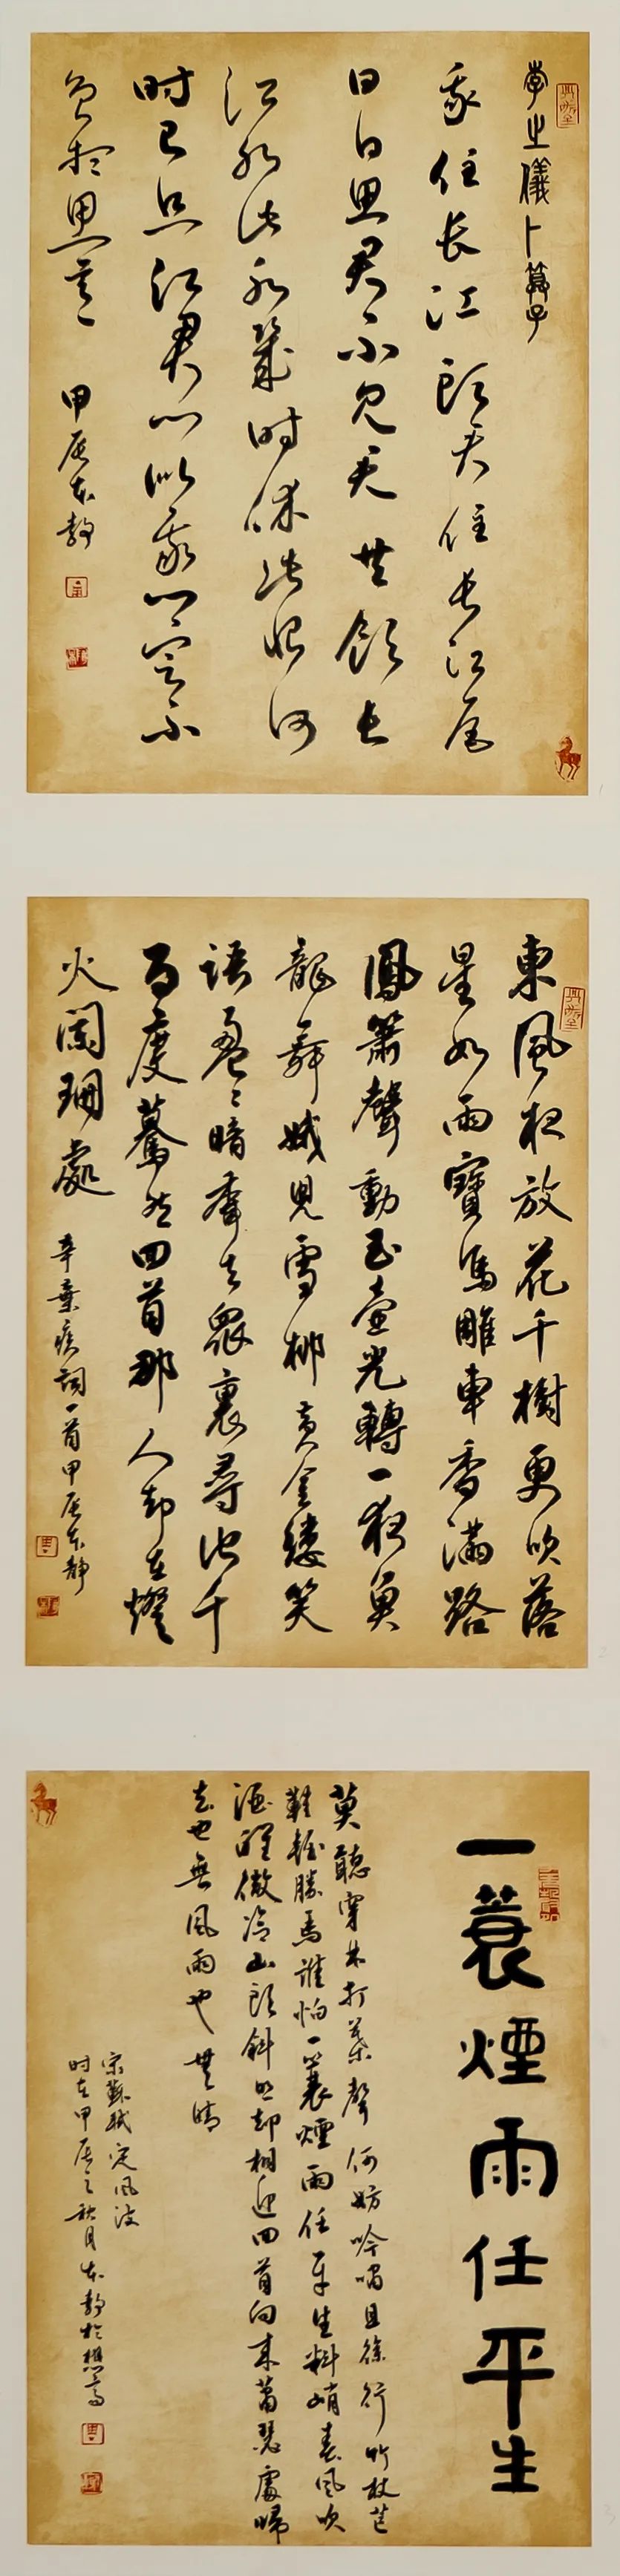 李之儀卜算子
我住長江頭君住長江尾
日日思君不見君共飲長
江水此水幾时休此恨何
时已只願君心似我心定不
負相思意
甲辰本静
東風夜放花千樹更吹落
星如雨寶馬雕車香滿路
鳳簫聲動玉壺光轉一夜魚
龍舞娥兒雪柳黄金縷笑
語盈〻暗香去眾裏尋他千
百度驀然回首那人却在燈
火闌珊處
辛棄疾詞一首甲辰本静
一蓑煙雨任平生
莫聽穿林打葉聲何妨吟嘯且徐行竹杖芒
鞋輕勝馬誰怕一蓑煙雨任平生料峭春風吹
酒醒微冷山頭斜照却相迎回首向來蕭瑟處歸
去也無風雨也無晴
宋蘇軾定風波
时在甲辰之秋月本静於